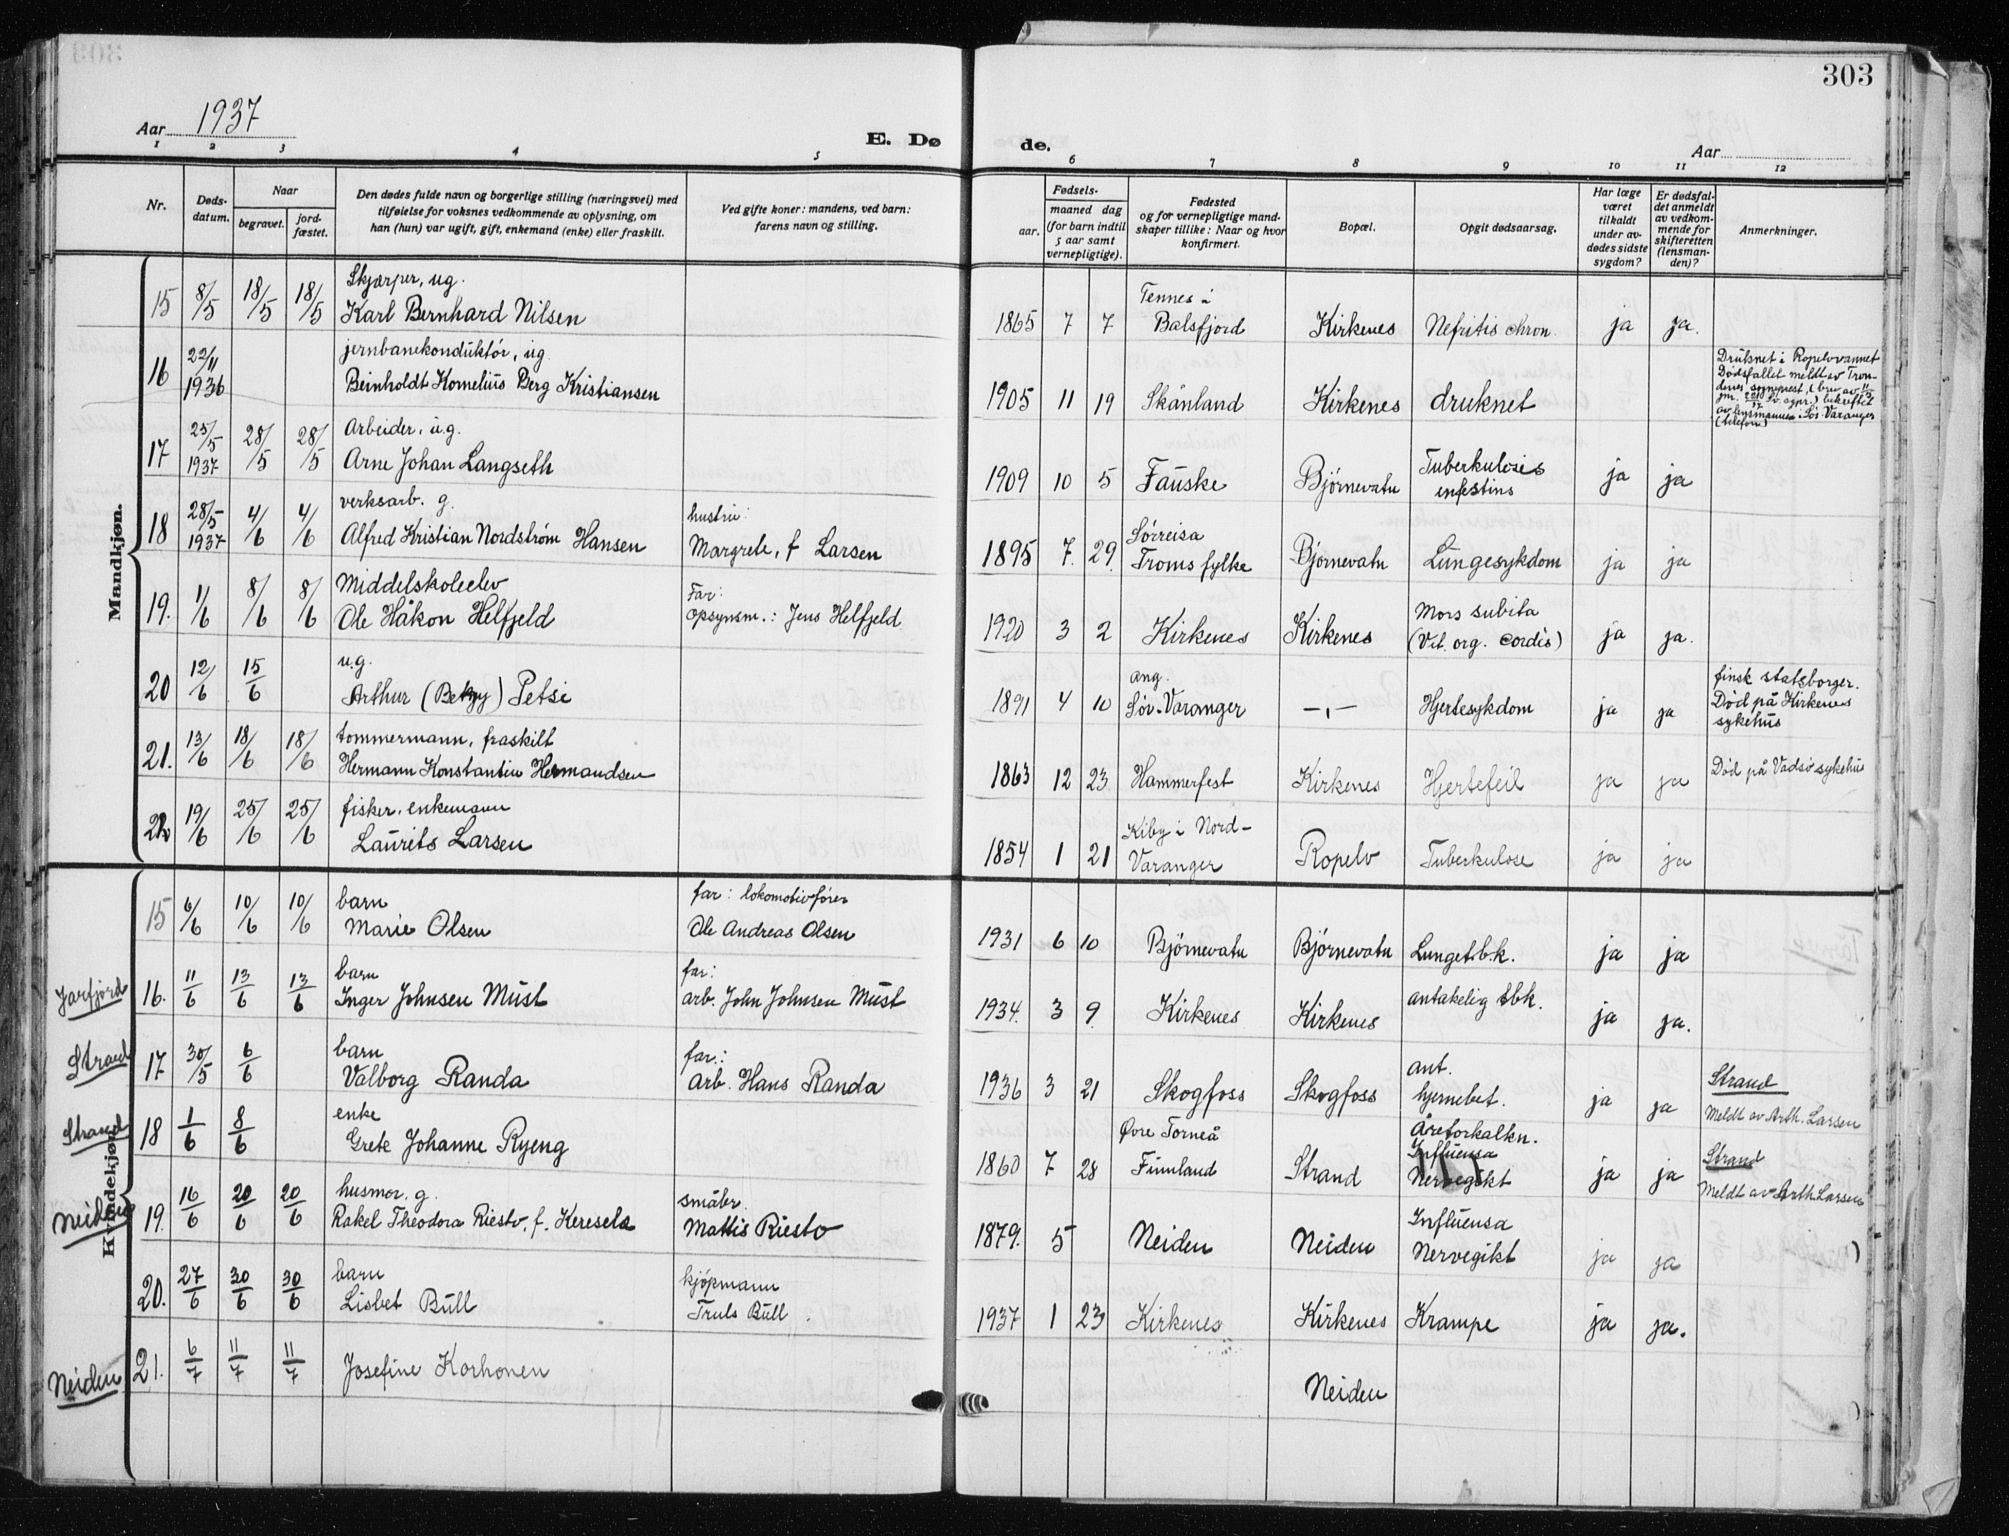 303
Aar 1937
E. Døde.
Aar
1 2 3 4 5 6 7 8 9 10 11 12
Nr.
Dødsdatum.
Naar
begravet.
jordfæstet.
Den dødes fulde navn og borgerlige stilling (næringsvei) med
tilføielse for voksnes vedkommende av oplysning, om
han (hun) var ugift, gift, enkemand (enke) eller fraskilt.
Ved gifte koner: mandens, ved barn:
farens navn og stilling.
Fødsels-
aar.
maaned dag
(for barn indtil
5 aar samt
vernepligtige).
Fødested
og for vernepligtige mand-
skaper tillike: Naar og hvor
konfirmert.
Bopæl.
Opgit dødsaarsag.
Har læge
været
tilkaldt
under av-
dødes sidste
sygdom?
Er dødsfal-
det anmeldt
av vedkom-
mende for
skifteretten
(lensman-
den)?
Anmerkninger.
Mandkjøn.
Skjærper, ug.
15 8/5 18/5 18/5 Karl Bernhard Nilsen
1865 7 7 Tennes i
Balsfjord Kirkenes Nefritis chron. ja ja.
jernbanekonduktør, ug.
16 22/11 1936 Beinholdt Kornelius Berg Kristiansen
1905 11 19 Skånland Kirkenes druknet
Druknet i Ropelvvannet
Dødsfallet meldt av Tron-
denes sogneprest (brev av
lensmannen i Sør-Varanger
(telefon)
Arbeider, ug.
17 25/5 1937 28/5 28/5 Arne Johan Langseth
1909 10 5 Fauske Bjørnevatn Tuberkulosis
enfestins ja ja
verksarb. g.
18 28/5 1937 4/6 4/6 Alfred Kristian Nordstrøm Hansen
hustru:
Margrete, f Larsen
1895 7. 29. Sørreisa
Troms fylke Bjørnevatn Lungesykdom ja ja
Middelskoleelev
19. 1/6 8/6 8/6 Ole Håkon Helfjeld
Far:
opsynsm.: Jens Helfjeld
1920 3 2 Kirkenes Kirkenes Mors subita
(Vit. org. cordis) ja ja.
ug.
20 12/6 15/6 Arthur (Betzy) Petsi
1891 4 10 ang.
Sør-Varanger —,— Hjertesykdom ja ja
finsk statsborger.
Død på Kirkenes
sykehus
tømmermann, fraskilt
21. 13/6 18/6 18/6 Hermann Konstantin Hermandsen
1863 12 23 Hammerfest Kirkenes Hjertefeil ja ja Død på Vadsø sykehus
fisker, enkemann
22 19/6 25/6 25/6 Laurits Larsen
1854 1 21 Kiby i Nord-
Varanger Ropelv Tuberkulose ja ja
Kvindekjøn.
barn
15 6/6 10/6 10/6 Marie Olsen
far: lokomotivfører
Ole Andreas Olsen
1931 6 10 Bjørnevatn Bjørnevatn Lungetb.k. ja ja
Jarfjord
barn
16. 11/6 13/6 13/6 Inger Johnsen Must
far:
arb. John Johnsen Must
1934. 3 9. Kirkenes Kirkenes antakelig tbk. ja ja.
Strand
barn
17 30/5 6/6 Valborg Randa
far:
arb. Hans Randa
1936 3 21 Skogfoss Skogfoss ant.
hjernebet. ja ja
Strand
Meldt av Arth. Larsen
Strand
enke
18 1/6 8/6 Grete Johanne Ryeng
1860 7 28 Øvre Torneå
Finnland Strand Åreforkalkn.
Influensa
Nervegikt ja ja
Strand
Meldt av Arth. Larsen
Neiden
husmor, g.
19. 16/6 20/6 20/6 Rakel Theodora Riesto, f. Keresela
småbr.
Mattis Riesto
1879. 5 Neiden Neiden Influensa
Nervegikt ja ja
barn
20. 27/6 30/6 30/6 Lisbet Bull
kjøpmann
Truls Bull
1937 1 23 Kirkenes Kirkenes Krampe ja ja.
Neiden
21. 6/7 11/7 11/7 Josefine Korhonen
Neiden